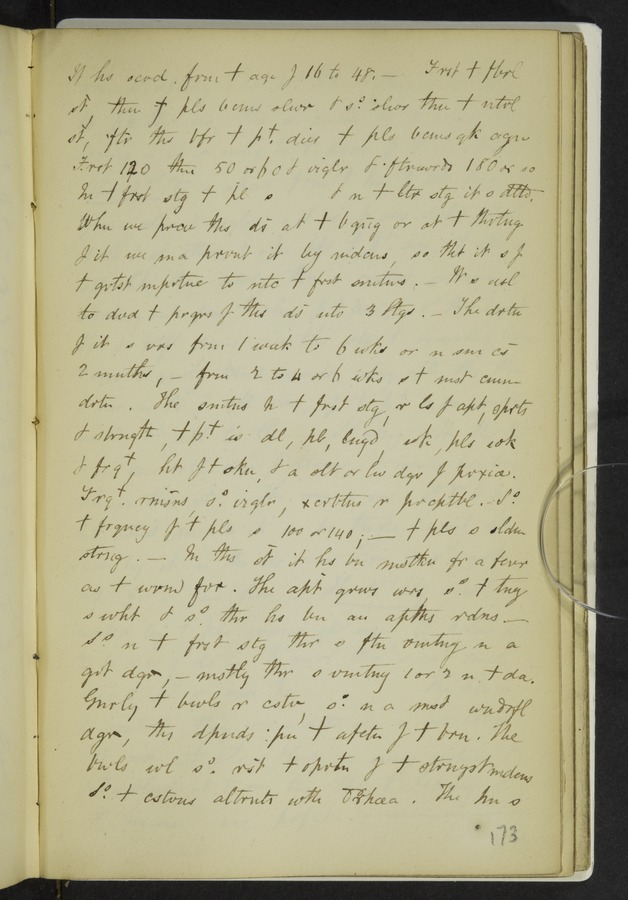 It hs ocod. frm + age f 16 to 48. — Frst + fbrl
st, then f pls bcms slwr & s° slwr thn + ntrl
st, ftr ths bfr + pt. dies + pls bcms qk agn
Frst 120 thn 50 or 60 & irglr & ftrwrds 180 or so
In + frst stg + pl s & n + ltr stg it s dltd.
Whn we prcv ths ds at + bgng or at + thrtng
f it we ma prvnt it by mdcns, so tht it s f
+ grtst mprtnc to ntc + frst smtms. — It s usl
to dvd + prgrs f ths ds nto 3 Stgs. — The drtn
f it s vrs frm 1 week to 6 wks or n sm cs
2 mnths, — frm 2 to 4 or 6 wks s + mst cmn
drtn. The smtms n + frst stg, r ls f apt, sprts
& strngth, + pt is dl, pl, lngd, wk, pls wk
& frqt, ht f + skn, & a slt or lw dgr f prxia.
Frqt. rmsns, s° irglr, xcrbtns r prcptbl. — S°
+ frqncy f + pls s 100 or 140; — + pls s sldm
strng. — In ths st it hs bn mstkn fr a fevr
as + worm fvr. The apt grws wrs, s° + tng
s wht & s° thr hs bn an apths rdns —
S° n + frst stg thr s ftn vmtng n a
grt dgr, — mstly thr s vmtng 1 or 2 n + da.
Gnrly + bwls r cstv, s° n a mst wndrfl
dgr, ths dpnds pn + afctn f + brn. The
bwls wl s° rst + oprtn f + strngst mdcns
S° + cstvns altrnts with Drhœa. The hn s
173